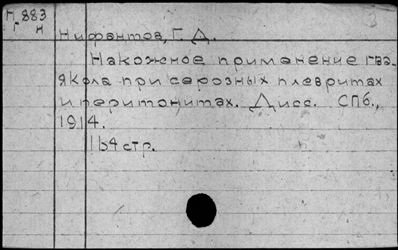 П.883
Г Н
Нифантов, Г. Д.
Накожное применение гва-
якола при серозных плевритах
и перитонитах. Дисс. СПб.,
1914.
164 стр.